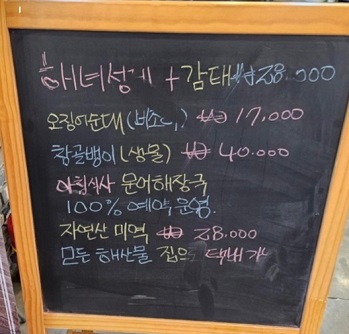 해녀성게 + 감태 ₩28.000
오징어순대 ₩ 17,000
참골뱅이 (생물) ₩ 40.000
아침식사 문어해장국
100% 예약 운영.
자연산 미역 ₩ 28.000
모든 해산물 집으로 택배 가